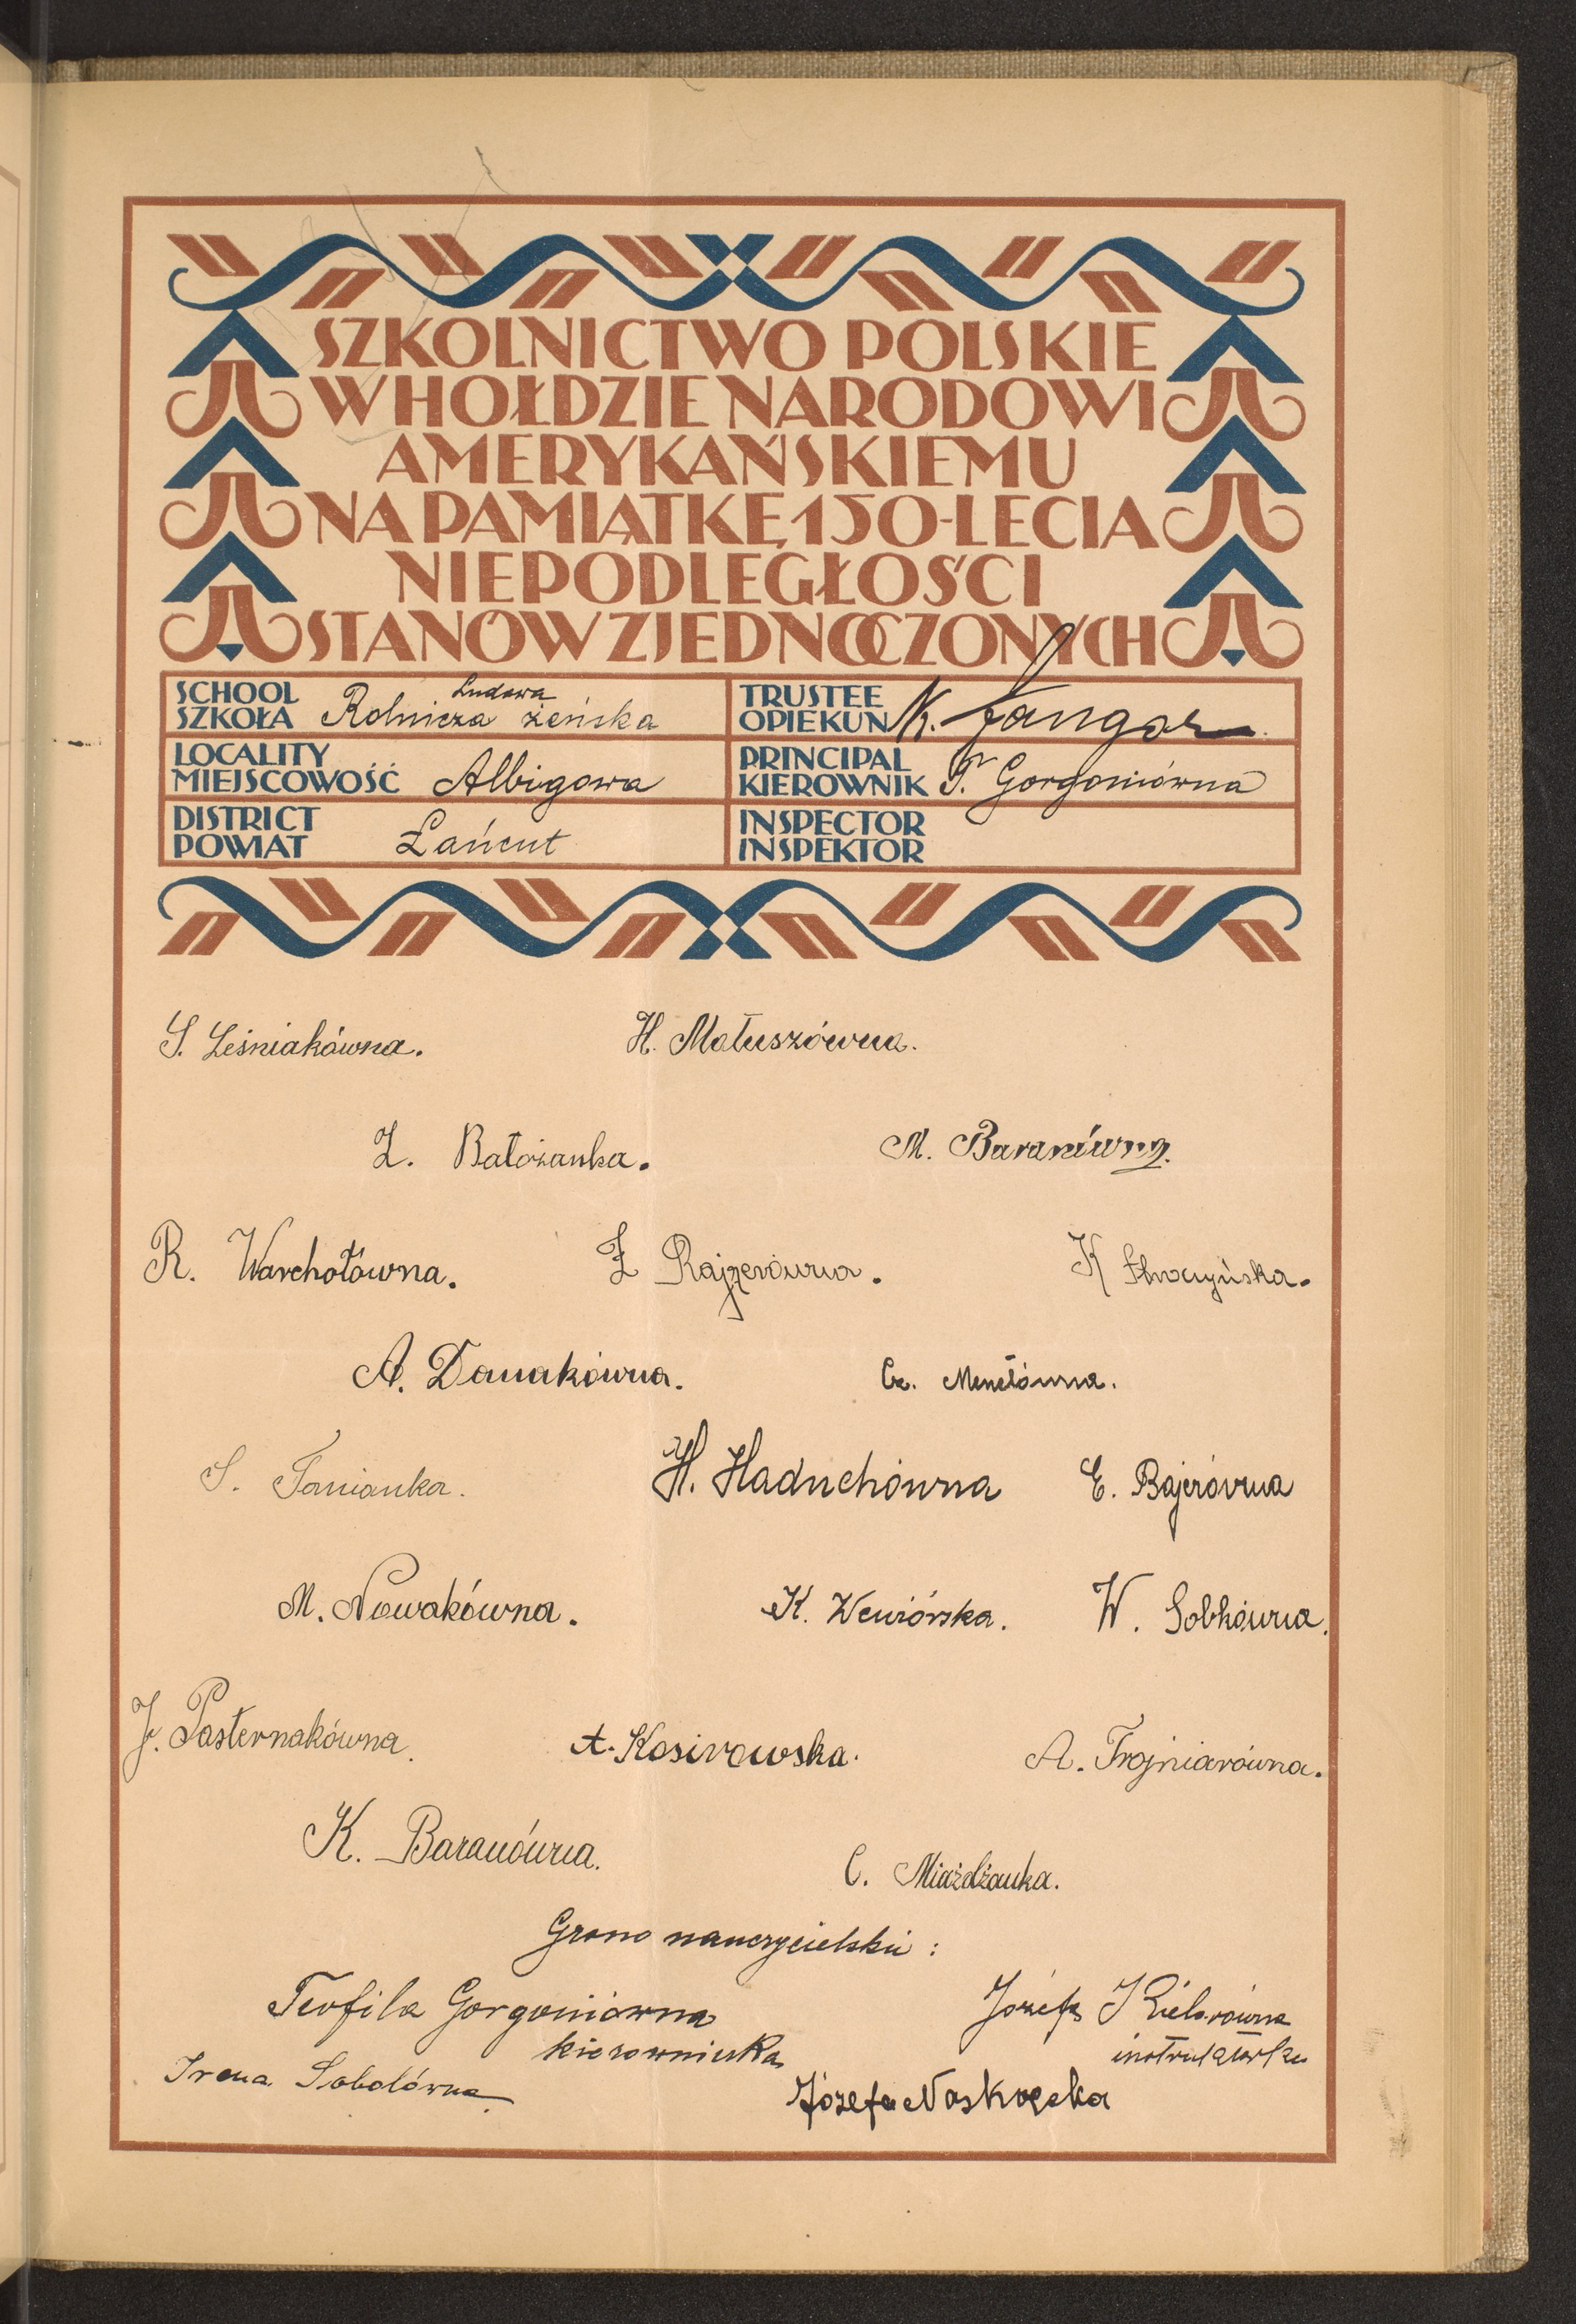 SZKOLNICTWO POLSKIE
W HOŁDZIE NARODOWI
AMERYKAŃSKIEMU
NA PAMIĄTKĘ 150-LECIA
NIEPODLEGŁOŚCI
STANÓW ZJEDNOCZONYCH
SCHOOL
SZKOŁA Rolnicza Ludowa żeńska
TRUSTEE
OPIEKUN K. Fangor
LOCALITY
MIEJSCOWOŚĆ Albigowa
PRINCIPAL
KIEROWNIK T. Gorgoniówna
DISTRICT
POWIAT Łańcut
INSPECTOR
INSPEKTOR
S. Leśniakówna. H. Matuszówna.
Z. Batożanka. M. Baranówna.
R. Warchołówna. Z Rajzerówna. K
A. Danakówna. Cz. Menclówna.
S. Tanianka. H. Haduchówna E. Bajerówna
M. Nowakówna. K. Wewiórska. W. Sobkówna.
J. Pasternakówna. A. Kosirowska. A. Trojniarówna.
K. Baranówna. C. Miażdżanka.
Grono nauczycielskie :
Teofila Gorgoniówna Józefa Kielarówna
kierowniczka instruktorka
Irena Sobolówna. Józefa Noskręcka